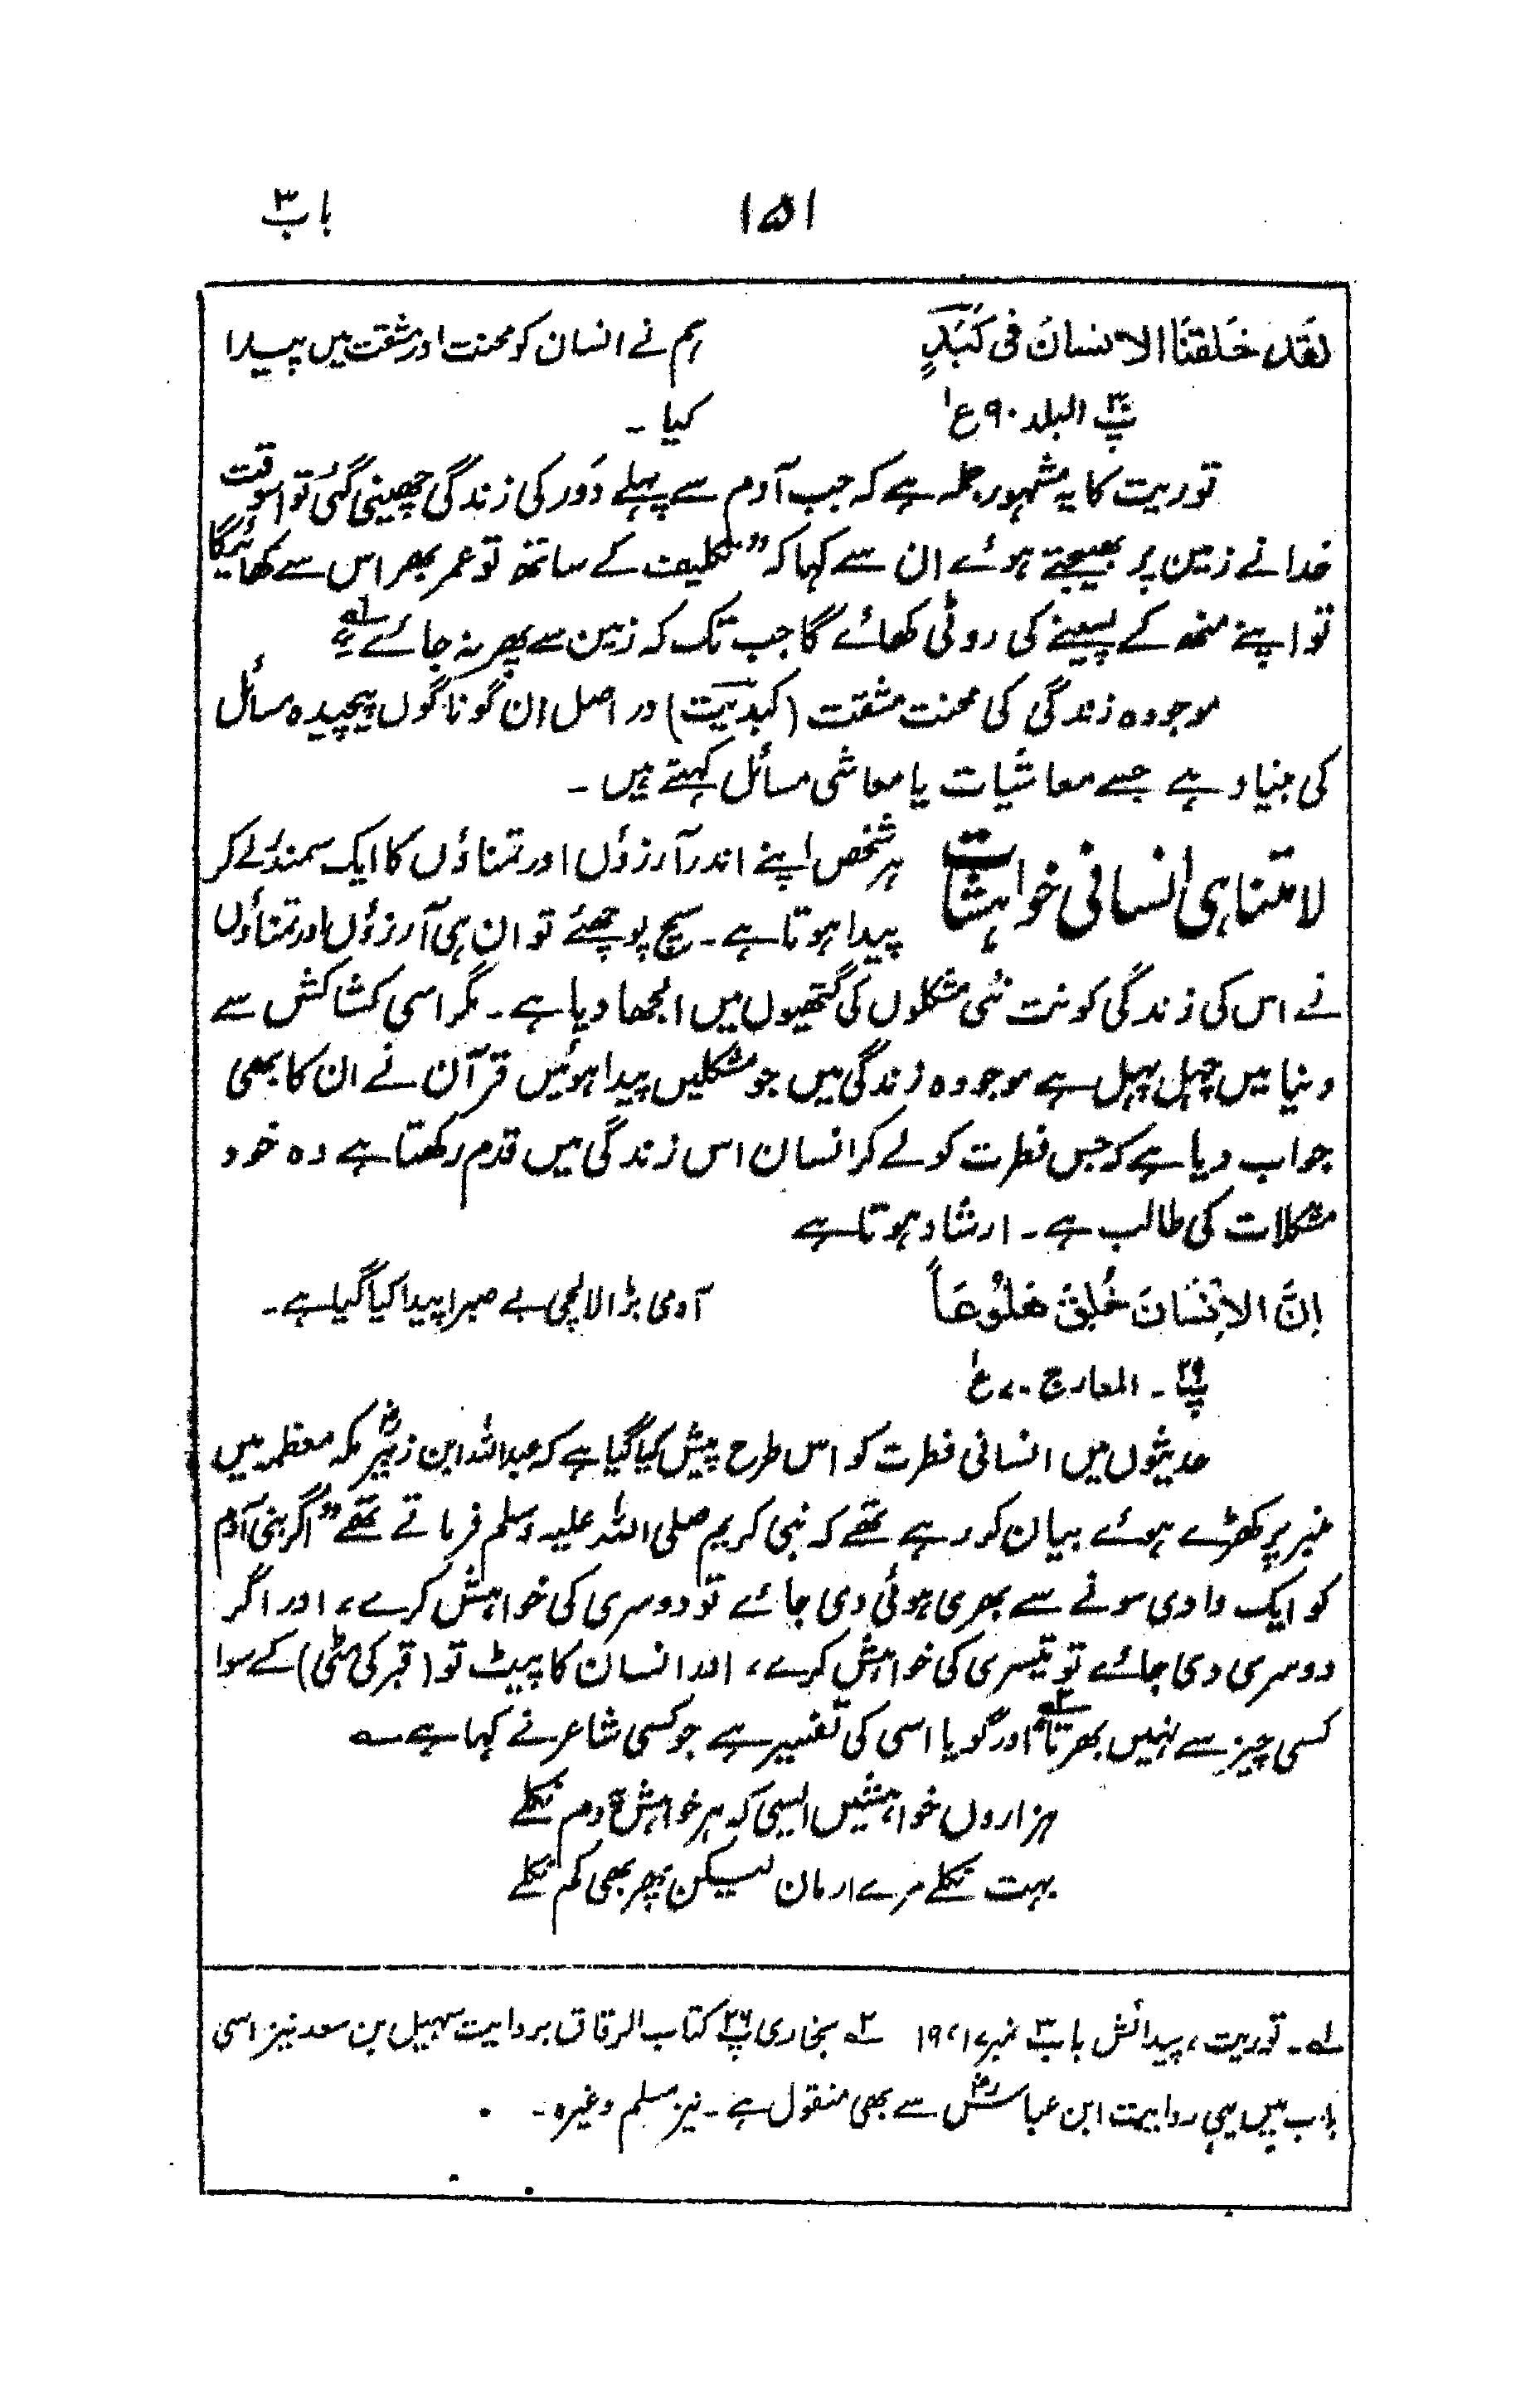 ۱۵۱
باب ۳
لَقَد خَلَقنَا الانسانَ فی کَبَدٍ
ہم نے انسان کو محنت اور مشقت میں پیدا
پ۳۰ البلد ۹۰ ع۱
کیا ۔
توریت کا یہ مشہور جملہ ہے کہ جب آدم سے پہلے دَور کی زندگی چھینی گئی تو اسوقت
خدا نے زمین پر بھیجتے ہوئے ان سے کہا کہ ”تکلیف کے ساتھ تو عمر بھر اس سے کھائیگا
تو اپنے منھ کے پسینے کی روٹی کھائے گا جب تک کہ زمین سے پھر نہ جائے“ ۱ـه
موجودہ زندگی کی محنت مشقت (کبدیّت) در اصل ان گوناگوں پیچیدہ مسائل
کی بنیاد ہے جسے معاشیات یا معاشی مسائل کہتے ہیں ۔
لامتناہی انسانی خواہشات
ہر شخص اپنے اندر آرزوؤں اور تمناؤں کا ایک سمندر لے کر
پیدا ہوتا ہے ۔ سچ پوچھئے تو ان ہی آرزوؤں اور تمناؤں
نے اس کی زندگی کو نت نئی مشکلوں کی گتھیوں میں الجھا دیا ہے ۔ مگر اسی کشاکش سے
دنیا میں چہل پہل ہے موجودہ زندگی میں جو مشکلیں پیدا ہوئیں قرآن نے ان کا بھی
جواب دیا ہے کہ جس فطرت کو لے کر انسان اس زندگی میں قدم رکھتا ہے وہ خود
مشکلات کی طالب ہے ۔ ارشاد ہوتا ہے
اِنَّ الاِنْسَانَ خُلِقَ هَلُوْعَاً
آدمی بڑا لالچی بے صبرا پیدا کیا گیا ہے ۔
پ۲۹ ۔ المعارج ۷۰ ع۱
حدیثوں میں انسانی فطرت کو اس طرح پیش کیا گیا ہے کہ عبداللہ ابن زبیرؓ مکہ معظمہ میں
منبر پر کھڑے ہوئے بیان کو رہے تھے کہ نبی کریم صلی اللہ علیہ وسلم فرماتے تھے ”اگر بنی آدم
کو ایک وادی سونے سے بھری ہوئی دی جائے تو دوسری کی خواہش کرے، اور اگر
دوسری دی جائے تو تیسری کی خواہش کرے، اور انسان کا پیٹ تو (قبر کی مٹی) کے سوا
کسی چیز سے نہیں بھرتا“ ۲ـه اور گویا اسی کی تفسیر ہے جو کسی شاعر نے کہا ہے ؎
ہزاروں خواہشیں ایسی کہ ہر خواہش پہ دم نکلے
بہت نکلے مرے ارمان لیکن پھر بھی کم نکلے
۱ـه ۔ توریت، پیدائش باب ۳ نمبر ۱۷، ۱۹ ۲ـه بخاری پ۲۶ کتاب الرقاق بروایت سہیل بن سعد نیز اسی
باب میں یہی روایت ابن عباسؓ سے بھی منقول ہے ۔ نیز مسلم وغیرہ ۔